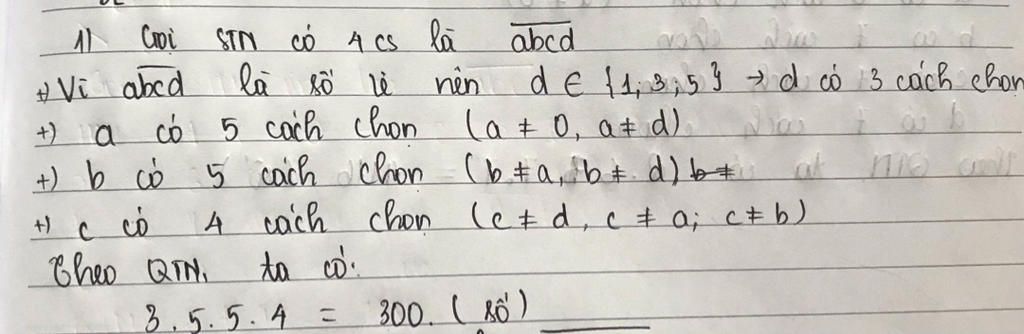 1) Gọi STN có 4 cs là abcd
+) Vì abcd là số lẻ nên d ∈ {1; 3; 5} → d có 3 cách chọn
+) a có 5 cách chọn (a ≠ 0, a ≠ d)
+) b có 5 cách chọn (b ≠ a, b ≠ d) b ≠
+) c có 4 cách chọn (c ≠ d, c ≠ a; c ≠ b)
Theo QTN, ta có:
3.5.5.4 = 300. (số)